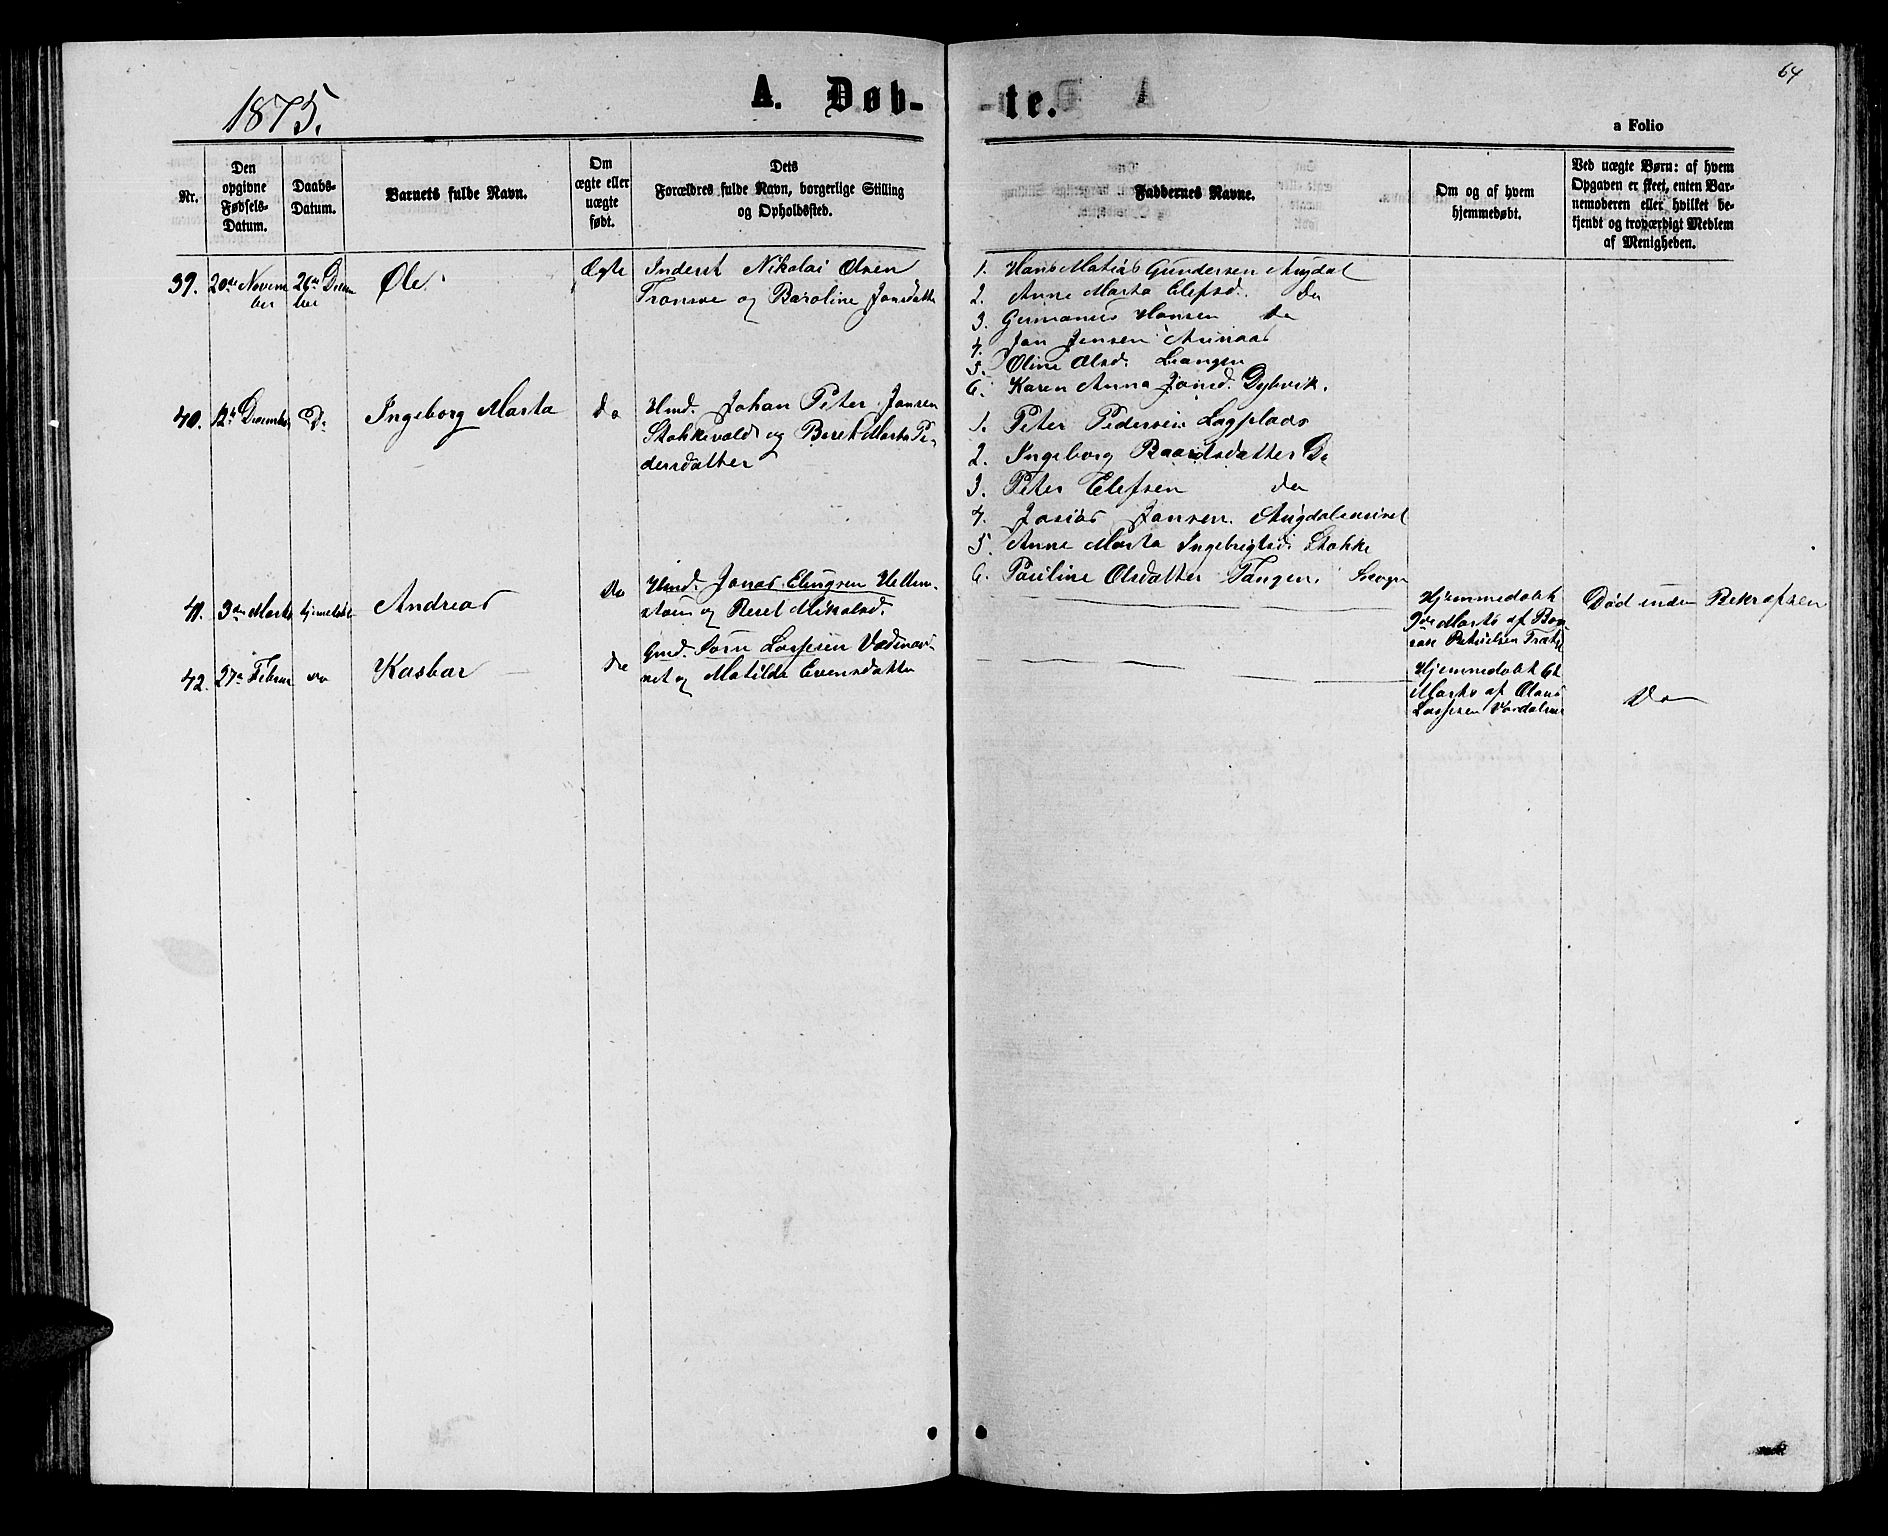 1875.
A. Døb-
-te.
64
a Folio
Nr.
Den
opgivne
Fødsels-
Datum.
Daabs-
Datum.
Barnets fulde Navn.
Om
ægte eller
uægte
født.
Dets
Forældres fulde Navn, borgerlige Stilling
og Opholdssted.
Faddernes Navne.
Om og af hvem
hjemmedøbt.
Ved uægte Børn: af hvem
Opgaven er skeet, enten Bar-
nemoderen eller hvilket be-
kjendt og troværdigt Medlem
af Menigheden.
39.
20de Novem
ber
26de Decem
ber
Ole
Ægte
Inderst Nikolai Olsen
og Baroline Jonsdatter
1. Hans Matias Gundersen Augdal
2. Anne Marta Elefsd. do
3. Germanus Hansen do
4. Jon Jensen
5. Oline Olsd.
6. Karen Anna Jonsd. Dybvik.
40.
12te December
Do
Ingeborg Marta
do
Hmd. Johan Peter Jansen
og Beret Marta Pe-
dersdatter
1. Peter Pedersen
2. Ingeborg Baardsdatter Do
3. Peter Elefsen do
4. Josias Jansen
5. Anne Marta Ingebrigtsd. Stokke
6. Pauline Olsdatter Tangen
41.
3die Marts
hjemmedøbt
Andreas
do
Hmd. Jonas
og Beret Mikalsd.
Hjemmedøbt
9de Marts af
Død inden
42.
27de Februar
do
Kasbar
do
Gmd. Søren
og Matilda Evensdatter
Hjemmedøbt 6te
Marts af Olaus
Do